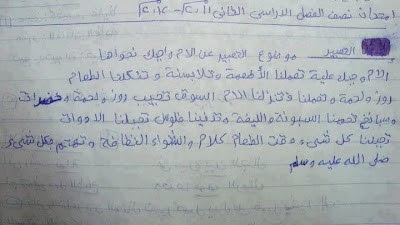 امتحان نصف الفصل الدراسي الثاني ٢٠١٢ - ٢٠١٣
التعبير موضوع التعبير عن الام واجبك نحوها
الام وجبك علية تعملنا الأطعمة وتلابسنة و تذكلنا الطعام
روز ولحمة وتعملنا فتنزلنا اللام السوق تجيب روز ولحمة وخضرات
وسبانخ تحمنا السبونة والليفة وتدفينا طوس تجبلنا الادوات
تجبلنا كل شيء وقت الطعام كلام والهواء النظافة وتهتم بكل شيء
صلي الله عليه وسلم